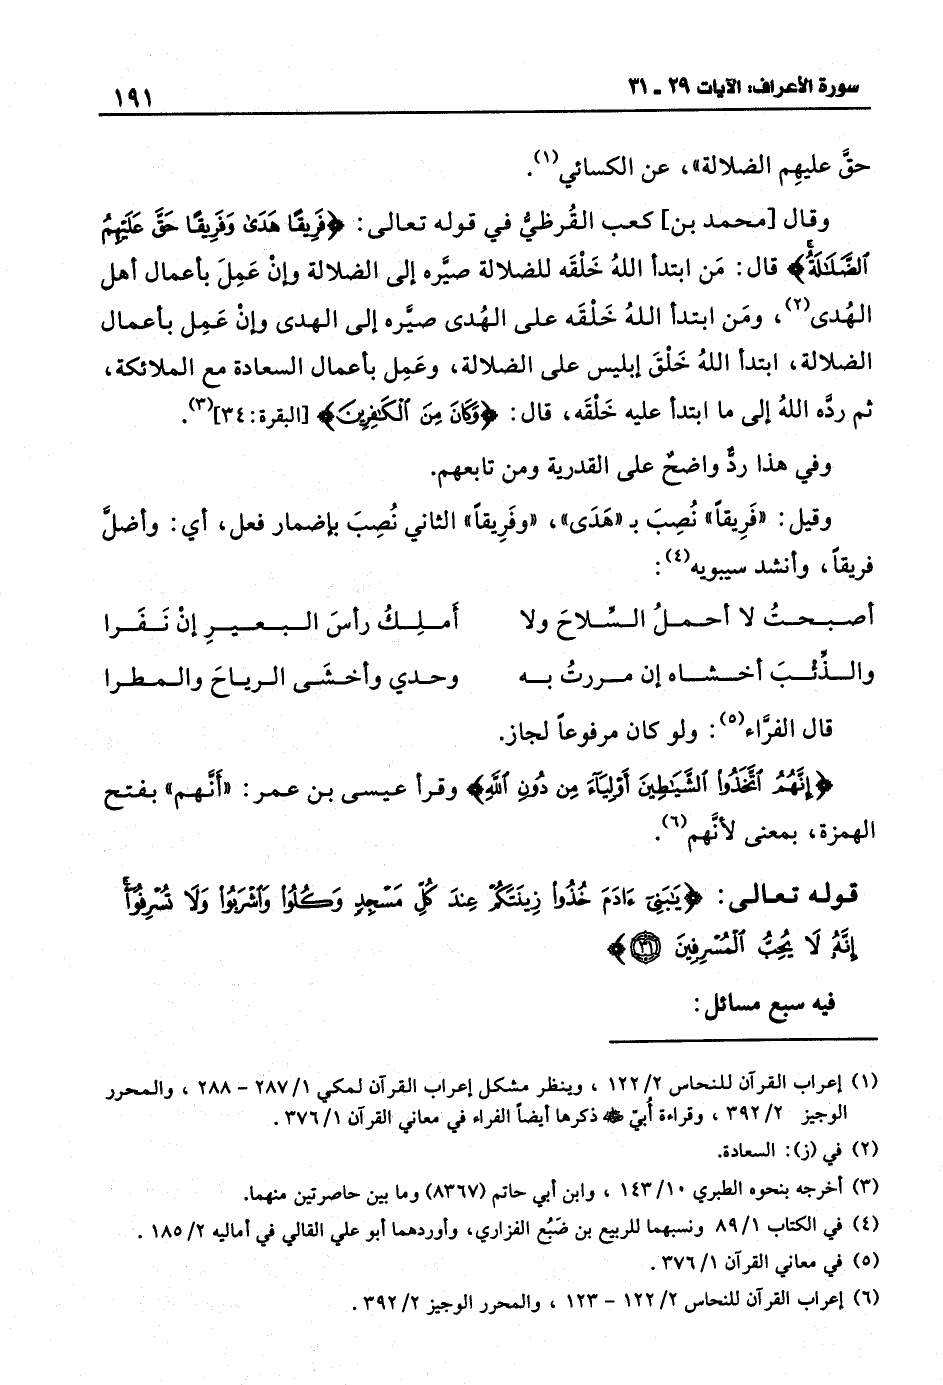 سورة الأعراف: الآيات ٢٩ - ٣١
١٩١
حقَّ عليهِم الضلالة»، عن الكسائي(١).
وقال [محمد بن] كعب القُرظيُّ في قوله تعالى: ﴿فَرِيقًا هَدَىٰ وَفَرِيقًا حَقَّ عَلَيْهِمُ
ٱلضَّلَٰلَةُۚ﴾ قال: مَن ابتدأ اللهُ خَلْقَه للضلالة صيَّره إلى الضلالة وإنْ عَمِلَ بأعمال أهل
الهُدى(٢)، ومَن ابتدأ اللهُ خَلْقَه على الهُدى صيَّره إلى الهدى وإنْ عَمِل بأعمال
الضلالة، ابتدأ اللهُ خَلْقَ إبليس على الضلالة، وعَمِل بأعمال السعادة مع الملائكة،
ثم ردَّه اللهُ إلى ما ابتدأ عليه خَلْقَه، قال: ﴿وَكَانَ مِنَ ٱلْكَٰفِرِينَ﴾ [البقرة: ٣٤](٣).
وفي هذا ردٌّ واضحٌ على القدرية ومن تابعهم.
وقيل: «فَرِيقاً» نُصِبَ بـ «هَدَى»، «وفَرِيقاً» الثاني نُصِبَ بإضمار فعل، أي: وأضلَّ
فريقاً، وأنشد سيبويه(٤):
أصبحتُ لا أحملُ السِّلاحَ ولا أَملِكُ رأسَ البعيرِ إنْ نَفَرا
والذِّئبَ أخشاه إن مررتُ به وحدي وأخشَى الرياحَ والمطرا
قال الفرَّاء(٥): ولو كان مرفوعاً لجاز.
﴿إِنَّهُمُ ٱتَّخَذُوا۟ ٱلشَّيَٰطِينَ أَوْلِيَآءَ مِن دُونِ ٱللَّهِ﴾ وقرأ عيسى بن عمر: «أَنَّهم» بفتح
الهمزة، بمعنى لأنَّهم(٦).
قوله تعالى: ﴿يَٰبَنِىٓ ءَادَمَ خُذُوا۟ زِينَتَكُمْ عِندَ كُلِّ مَسْجِدٍ وَكُلُوا۟ وَٱشْرَبُوا۟ وَلَا تُسْرِفُوٓا۟ۚ
إِنَّهُۥ لَا يُحِبُّ ٱلْمُسْرِفِينَ ٣١﴾
فيه سبع مسائل:
(١) إعراب القرآن للنحاس ٢/ ١٢٢ ، وينظر مشكل إعراب القرآن لمكي ١/ ٢٨٧ - ٢٨٨ ، والمحرر
الوجيز ٢/ ٣٩٢ ، وقراءة أُبيّ ﷺ ذكرها أيضاً الفراء في معاني القرآن ١/ ٣٧٦ .
(٢) في (ز): السعادة.
(٣) أخرجه بنحوه الطبري ١٠/ ١٤٣ ، وابن أبي حاتم (٨٣٦٧) وما بين حاصرتين منهما.
(٤) في الكتاب ١/ ٨٩ ونسبهما للربيع بن ضَبُع الفزاري، وأوردهما أبو علي القالي في أماليه ٢/ ١٨٥ .
(٥) في معاني القرآن ١/ ٣٧٦ .
(٦) إعراب القرآن للنحاس ٢/ ١٢٢ - ١٢٣ ، والمحرر الوجيز ٢/ ٣٩٢ .